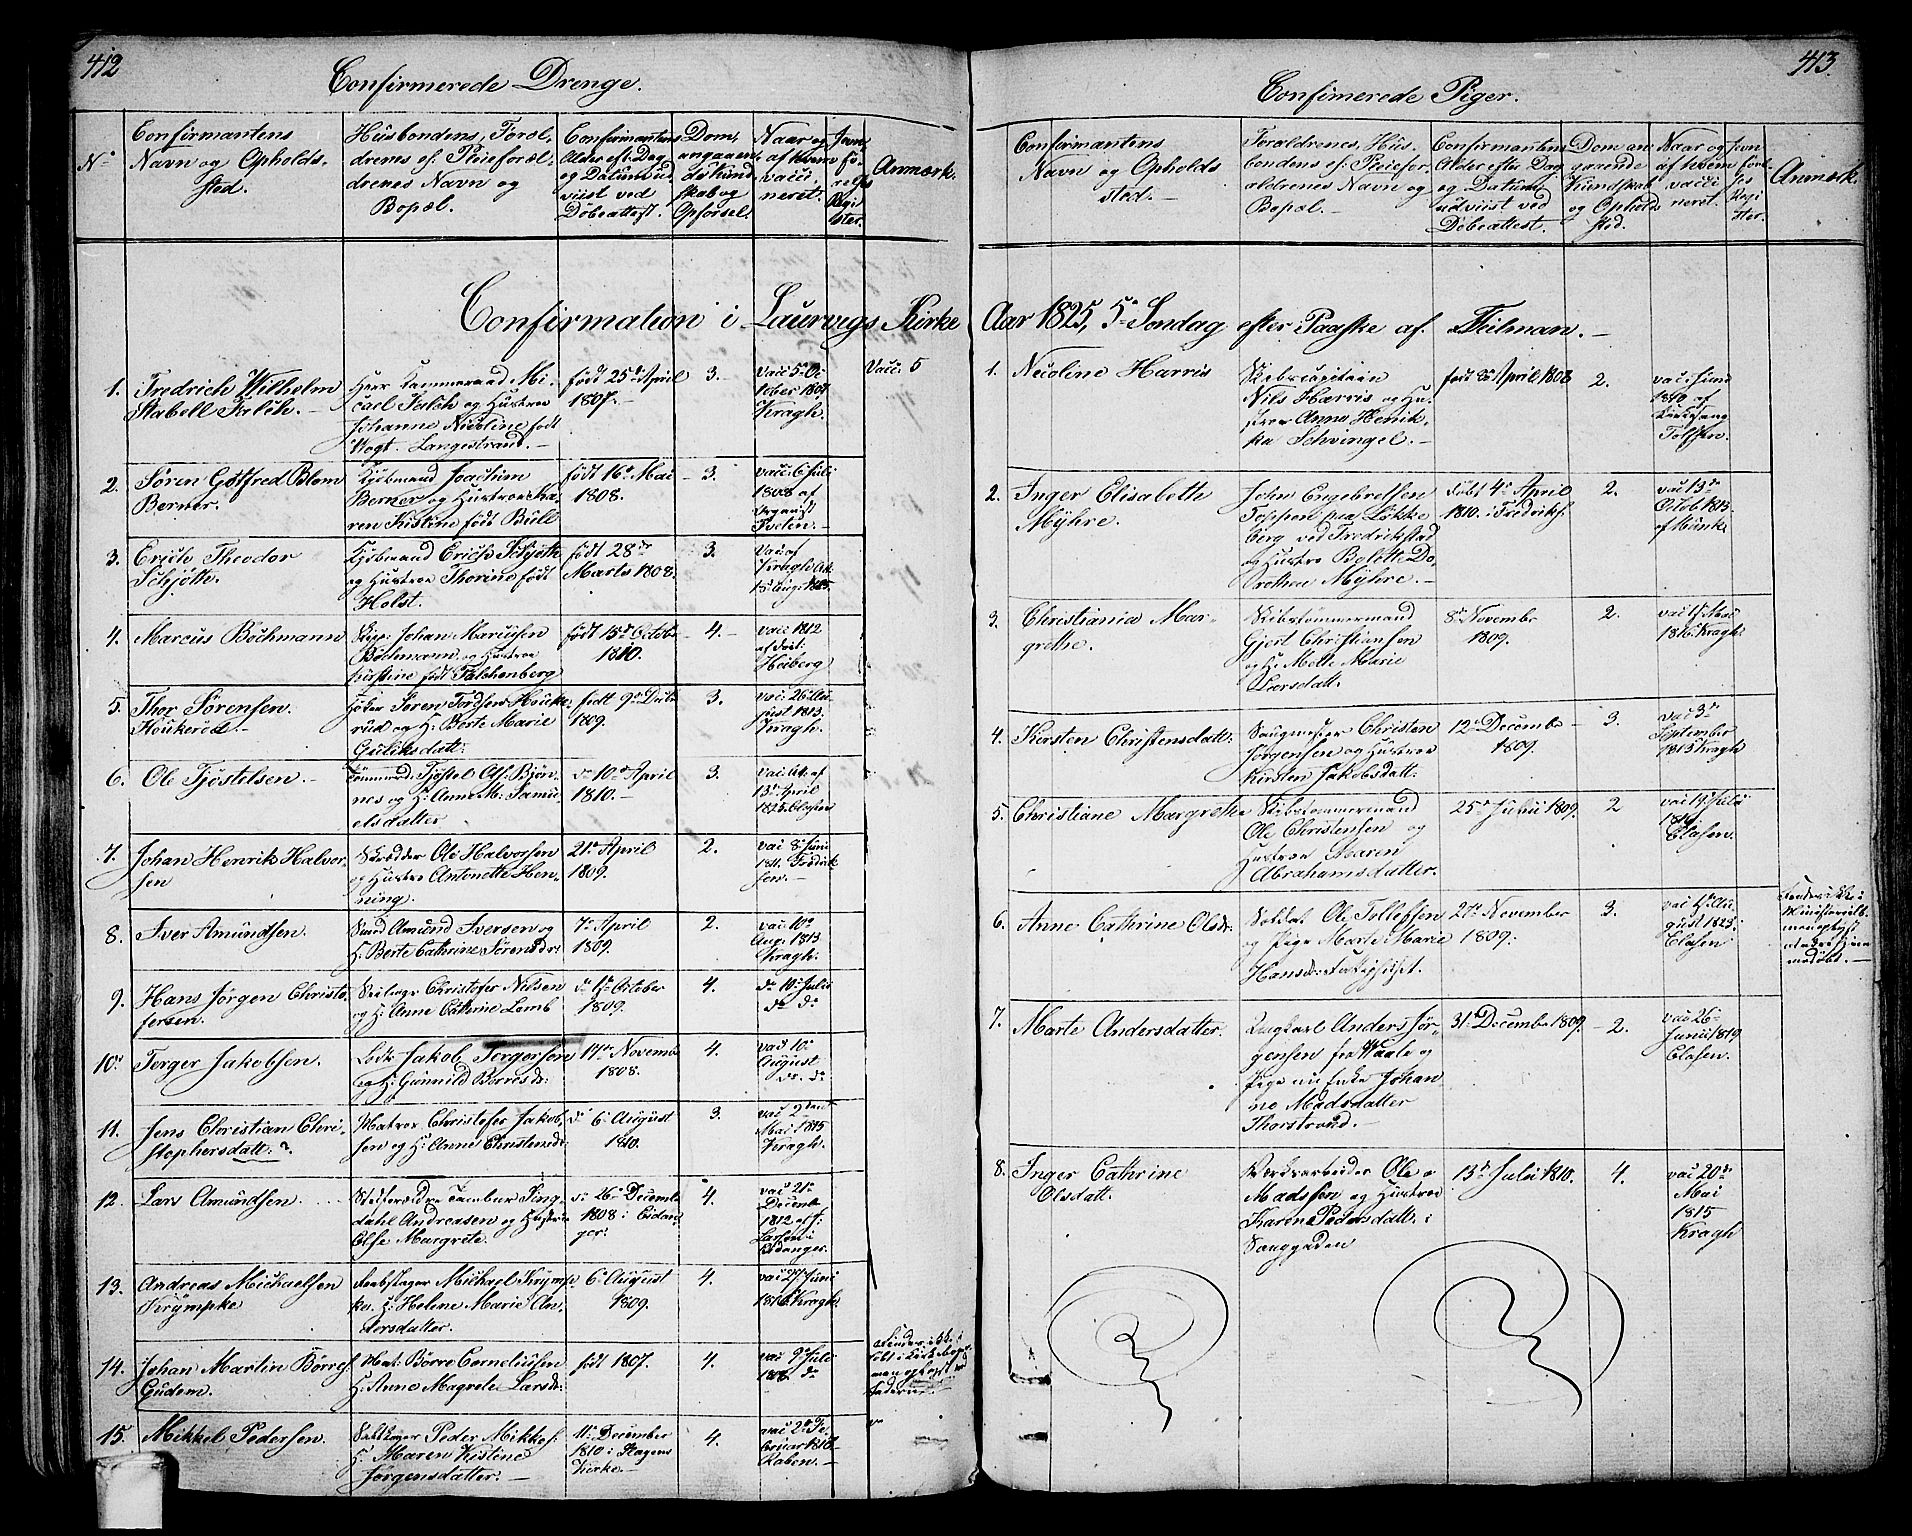 412
Confirmerede Drenge.
No
Confirmantens
Navn og Opholds-
sted.
Husbondens, Foræl-
drenes ef: Pleieforæl-
drenes Navn og
Bopæl.
Confirmantens
Alder eft: Dag
og Datum ud
viist ved
Døbeattest.
Dom,
angaaen
de Kund
skab og
Opførsel.
Naar og
af hvem
vacci
neret.
Anmærk.
Confirmation i Laurvigs Kirke
1. Fredrich Wilhelm
Stabell Falch.
Herr Kammerraad Mi-
cael Falch og Hustroe
Johanne Nicoline født
Vogt. Langestrand.
født 25de April
1807.
3.
Vacc 5 Oc
tober 1807
Kragh.
Vacc: 5
2. Søren Gotfred Blom
Berner.
Kjøbmand Joachum
Berner og Hustroe Ka-
ren Kistine født Bull
født 16de Mai
1808.
3.
vacc: 6 Juli
1808 af
Organist
Ivelen.
3. Erich Theodor
Schjøtte.
Kjøbmand Erich Schjøtte
og Hustroe Thorine født
Holst.
født 28de
Marts 1808.
3.
Vac: af
Kragh
4. Marcus Bochmann
Skip: Johan Marcusen
Bochmann og Hustroe
Kirstine født Falchenberg
født 15de Octob:
1810.
4.
vacc 1812
Høiberg
5. Thor Sørensen
Houkerød.
Søren Tordsen Houke-
rud og H: Berte Marie
Guliksdatt:
født 9de Decb:
1809.
3.
vac: 26 Au
gust 1813.
Kragh:
6. Ole Tjøstelsen.
Tjøstel Ols: Bjøn-
nes og H: Anne M: Samu-
elsdatter
do 10de April
1810.
3.
13de April
1825 Clasen
7. Johan Henrik Halvor
sen
Skrædder Ole Halvorsen
og Hustro Antonette Hen-
ning.
21de April
1809.
2.
vac 8 Juni
1811 Fredrik
sen.
8. Iver Amundsen.
Amund Iversen og
H: Berte Cathrine Sørensdr:
7de April
1809.
2.
vac: 10de
Aug: 1813
Kragh:
9. Hans Jørgen Christo
fersen.
Christofer Nilsen
og H: Anne Cathrine Lamb
do 1de October
1809.
4.
do 10de Julii
do do
10. Torger Jakobsen.
Jakob Torgersen
og H: Gunnild Børresdr:
17de Novemb:
1808.
4.
vac 10de
August
do. do
11. Jens Christian Chri-
stophersdatt: ?
Matros Christofer Jakob-
sen og H: Anne Christensdr:
do 6de August
1810.
3.
vac: 2den
Mai 1815
Kragh:
12. Lars Amundsen
Stifforældre Tambur Sing
dahl Andreasen og Hustroe
Else Margrete.
do 26de Decemb:
1808 i Eidan-
ger:
4.
vac: 21de
Decemb:
1812 af J:
Larsen i
Eidanger.
13. Andreas Michaelsen
Krympke
Reebslager Michael Krymp-
ke. H: Helene Marie An-
dersdatter.
6de August
1809.
4.
vac: 27 Juni
1816 Kragh:
14. Johan Martin Børres
Gudem.
Mat: Børre Corneliussen
H: Anne Magrete Larsdr:
født 1807.
4.
vac: 9de Juli
do
Findes ikke
født i Kirkebogen
men opgivet ved
Faderen
15. Mikkel Pedersen.
Peder Mikkels:
H: Maren Kistine
Jørgensdatter.
11te December
1810 i Hagens
Kirke.
4.
vac: 2de Fe
bruar 1813
Raben.
413.
Confirmerede Piger.
Confirmantens
Navn og Opholds
sted.
Foraldrenes, Hus-
bondens ef: Pleiefor-
ældrenes Navn og
Bopæl.
Confirmantens
Alder efter Dag
og Datum
udviist ved
Døbeattest.
Dom an
gaaende
Kundskab
og Ophold
sted.
Naar og
af hvem
vacci
neret.
Jvn
førel
ses
Regi
ster.
Anmærk.
Aar 1825, 5te Søndag efter Paaske af Teilman.
1. Nicoline Harris
Skibscapitain
Nils Harris og Hu-
stroe Anna Henik-
ka Schvingel.
født 8de April 1808
2.
vac: i Juni
1810 af
Kirkesang
Tolfsen.
2. Inger Elisabeth
Myhre.
John Engebretsen
Toppen paa Løkke
berg ved Fredrikstad
og Hustroe Bolette Do-
rothea Myhre.
født 4de April
1810 i Fredriks.
2.
vac: 13de
Octob 1813.
af Munk
3. Christiania Mar-
grethe.
Skibstømmermand
Gjert Christiansen
og H: Mette Marie
Larsdatt:
8de Novembr
1809.
2.
vac: 15 Mai
1816 Kragh:
4. Kirsten Christensdatt:
Saugmester Christen
Jørgensen og Hustroe
Kirsten Jakobsdatt:
12te Decembr
1809.
3.
vac 3de
September
1815 Kragh
5. Christiane Margrethe
Skibstømmermand
Ole Christensen og
Hustroe Maren
Abrahamsdatter.
25de Junii 1809.
2
vac: 19de Juli
Clasen.
6. Anne Cathrine Olsdr:
Soldat Ole Tollefsen
og Pige Marte Marie
Hansdr:
27de November
1809.
3.
vac: 4de Au-
gust 1823:
Clasen
Findes ikke i
Ministerialb.
men opgivet
at være hjem
medøbt.
7. Marte Andersdatter.
Ungkarl Anders Jør-
gensen fra Vaale og
Pige nu Enke Johan
ne Madsdatter
Thorstrand.
31te December 1809.
2.
vac: 26
Junii 1819
Clasen.
8. Inger Cathrine
Olsdatt:
Værksarbeider Ole
Madssen og Hustroe
Karen Pedersdatt: i
Sauggaden
13de Julii 1810.
4.
vac: 20de
Mai
1815
Kragh